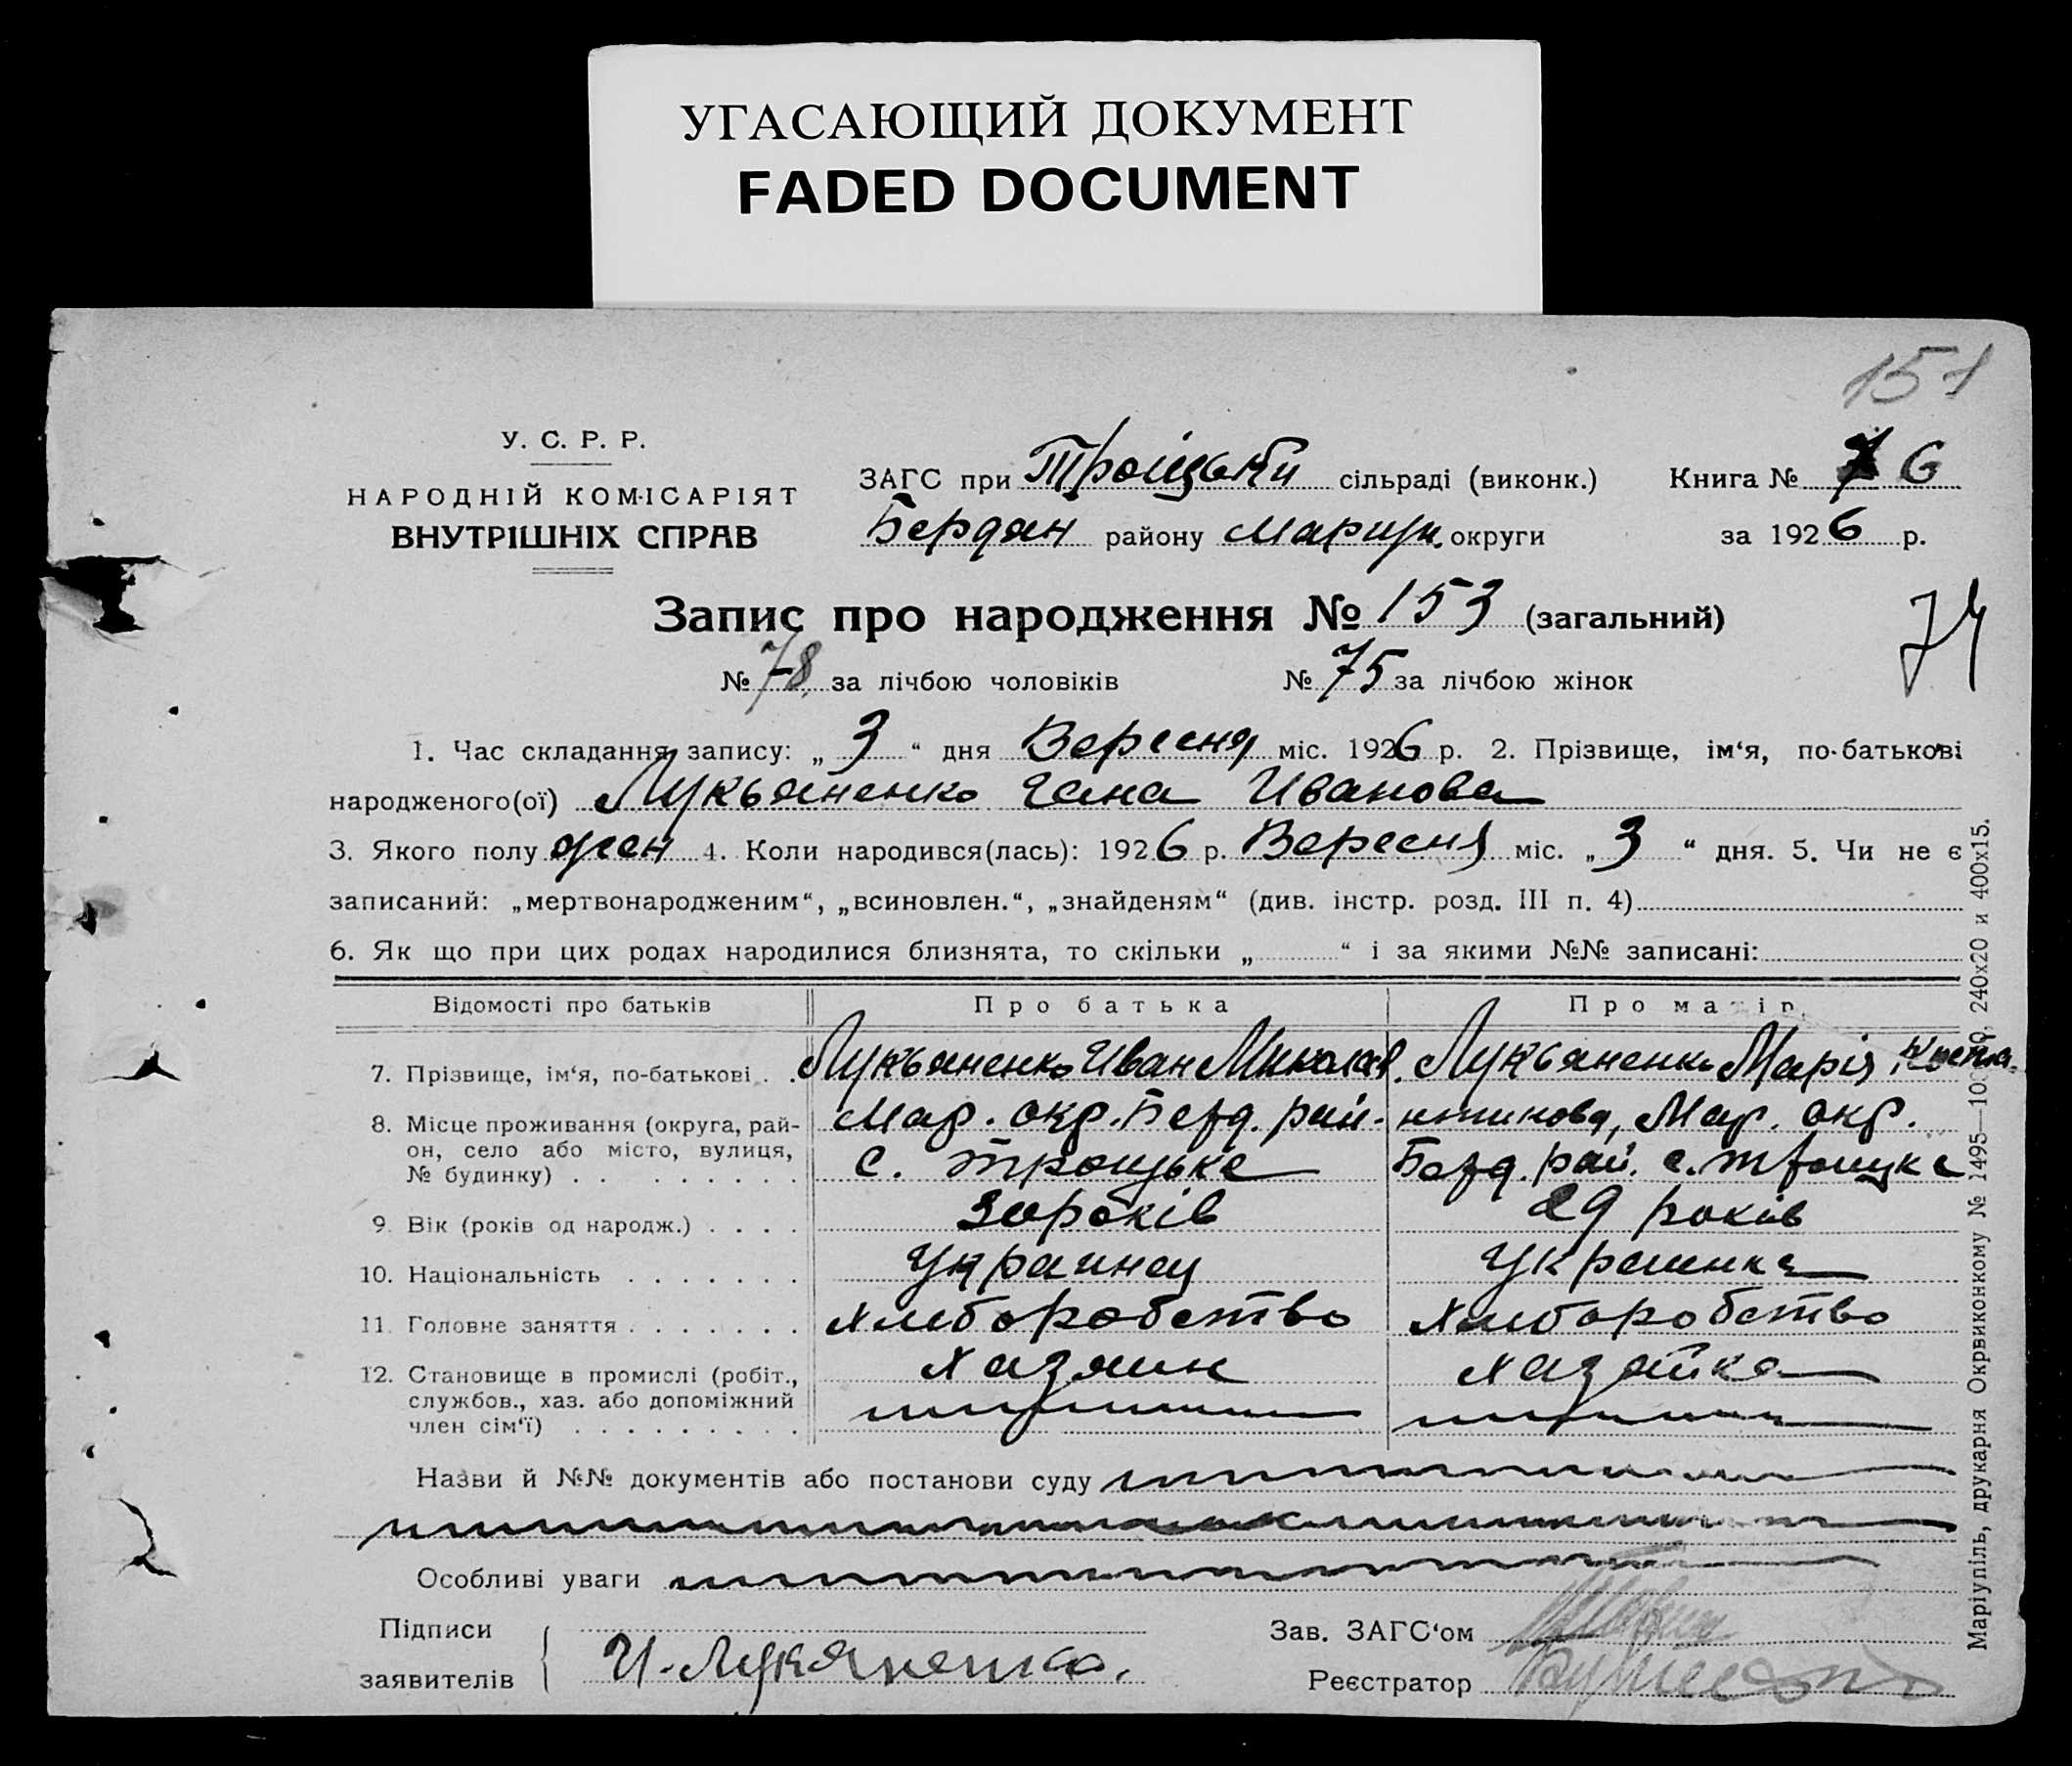 УГАСАЮЩИЙ ДОКУМЕНТ
FADED DOCUMENT
151
У. С. Р. Р.
НАРОДНІЙ КОМІСАРІЯТ
ВНУТРІШНІХ СПРАВ
ЗАГС при Троіцькій сільраді (виконк.) Книга № 6
Бердян району Маріуп. округи за 1926 р.
Запис про народження № 153 (загальний)
74
№ 78 за лічбою чоловіків № 75 за лічбою жінок
1. Час складання запису: „ 3 “ дня Вересня міс. 1926 р. 2. Прізвище, ім‘я, по-батькові
народженого(ої) Лукьяненко Гана Иванова
3. Якого полу жен 4. Коли народився(лась): 1926 р. Вересня міс. „ 3 “ дня. 5. Чи не є
записаний: „мертвонародженим“, „всиновлен.“, „знайденям“ (див. інстр. розд. III п. 4)
6. Як що при цих родах народилися близнята, то скільки „ “ і за якими №№ записані:
Відомості про батьків Про батька Про матір.
7. Прізвище, ім‘я, по-батькові . . Лукьяненко Иван Миколав. Лукьяненко Марія Конста-
8. Місце проживання (округа, рай- Мар. окр. Берд. рай. нтинова, Мар. окр.
он, село або місто, вулиця, с. Троицьке Берд. рай. с. Троицке
№ будинку) . . . . . . . .
9. Вік (років од народж.) . . . . 30 років 29 років
10. Національність . . . . . . . Украинец Украинка
11. Головне заняття . . . . . . . Хлиборобство Хлиборобство
12. Становище в промислі (робіт., Хазяин Хазяйка
службов., хаз. або допоміжний
член сім‘ї) . . . . . . . . .
Назви й №№ документів або постанови суду
Особливі уваги
Підписи Зав. ЗАГС‘ом
заявителів И. Лукяненко. Реєстратор
Маріупіль, друкарня Окрвиконкому № 1495—10 240х20 и 400х15.